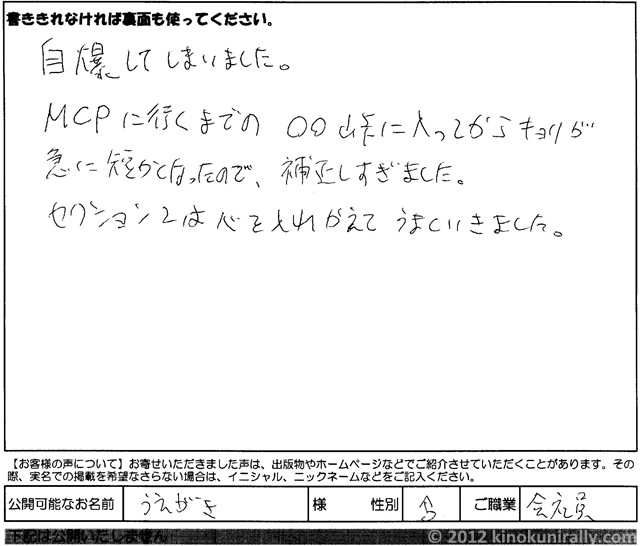 書ききれなければ裏面も使ってください。
自爆してしまいました。
MCPに行くまでの〇〇峠に入ってからキョリが
急に短かくなったので、補正しすぎました。
セクション2は心を入れかえてうまくいきました。
【お客様の声について】お寄せいただきました声は、出版物やホームページなどでご紹介させていただくことがあります。その
際、実名での掲載を希望なさらない場合は、イニシャル、ニックネームなどをご記入ください。
公開可能なお名前 うえがき 様 性別 ご職業 会社員
下記は公開いたしません
© 2012 kinokunirally.com